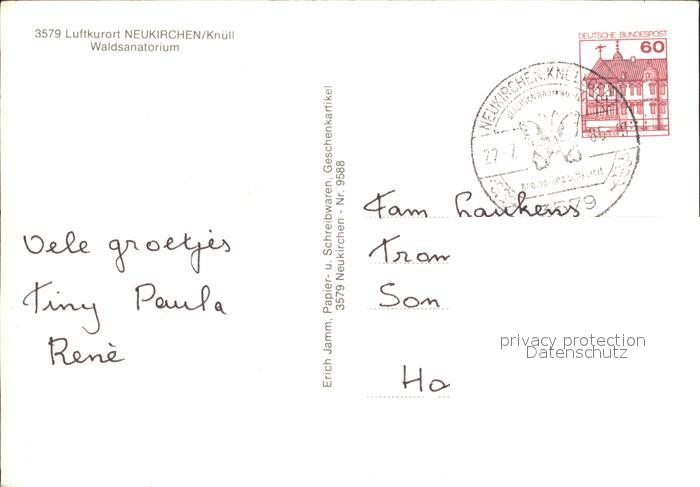 3579 Luftkurort NEUKIRCHEN/Knüll
Waldsanatorium
DEUTSCHE BUNDESPOST
60
NEUKIRCHEN, KNÜLL
22-7.
3579
Erich Jamm, Papier- u. Schreibwaren, Geschenkartikel
3579 Neukirchen - Nr. 9588
Vele groetjes
Tiny Paula
Renè
Fam Laukens
Tran
Son
Ho
privacy protection
Datenschutz